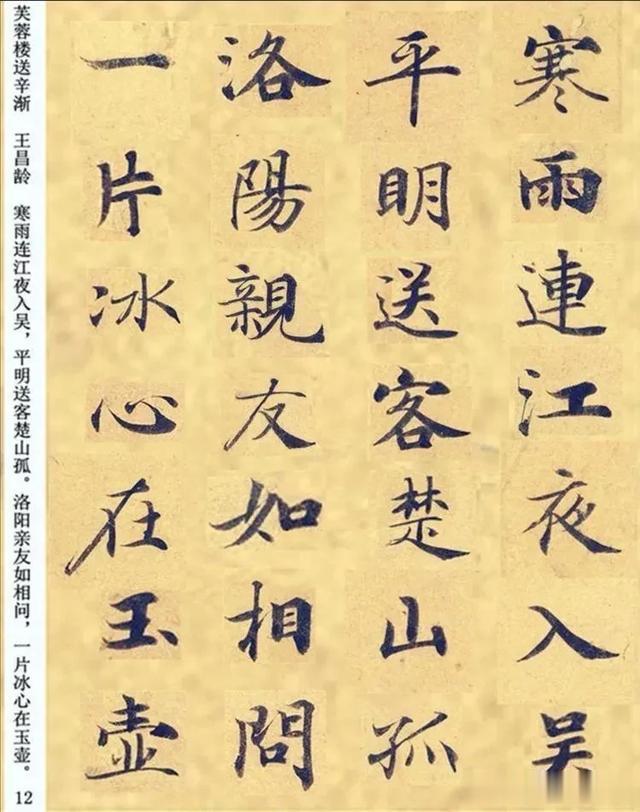 寒雨連江夜入吴
平明送客楚山孤
洛陽親友如相問
一片冰心在玉壺
芙蓉楼送辛渐　王昌龄　寒雨连江夜入吴，平明送客楚山孤。洛阳亲友如相问，一片冰心在玉壶。
12